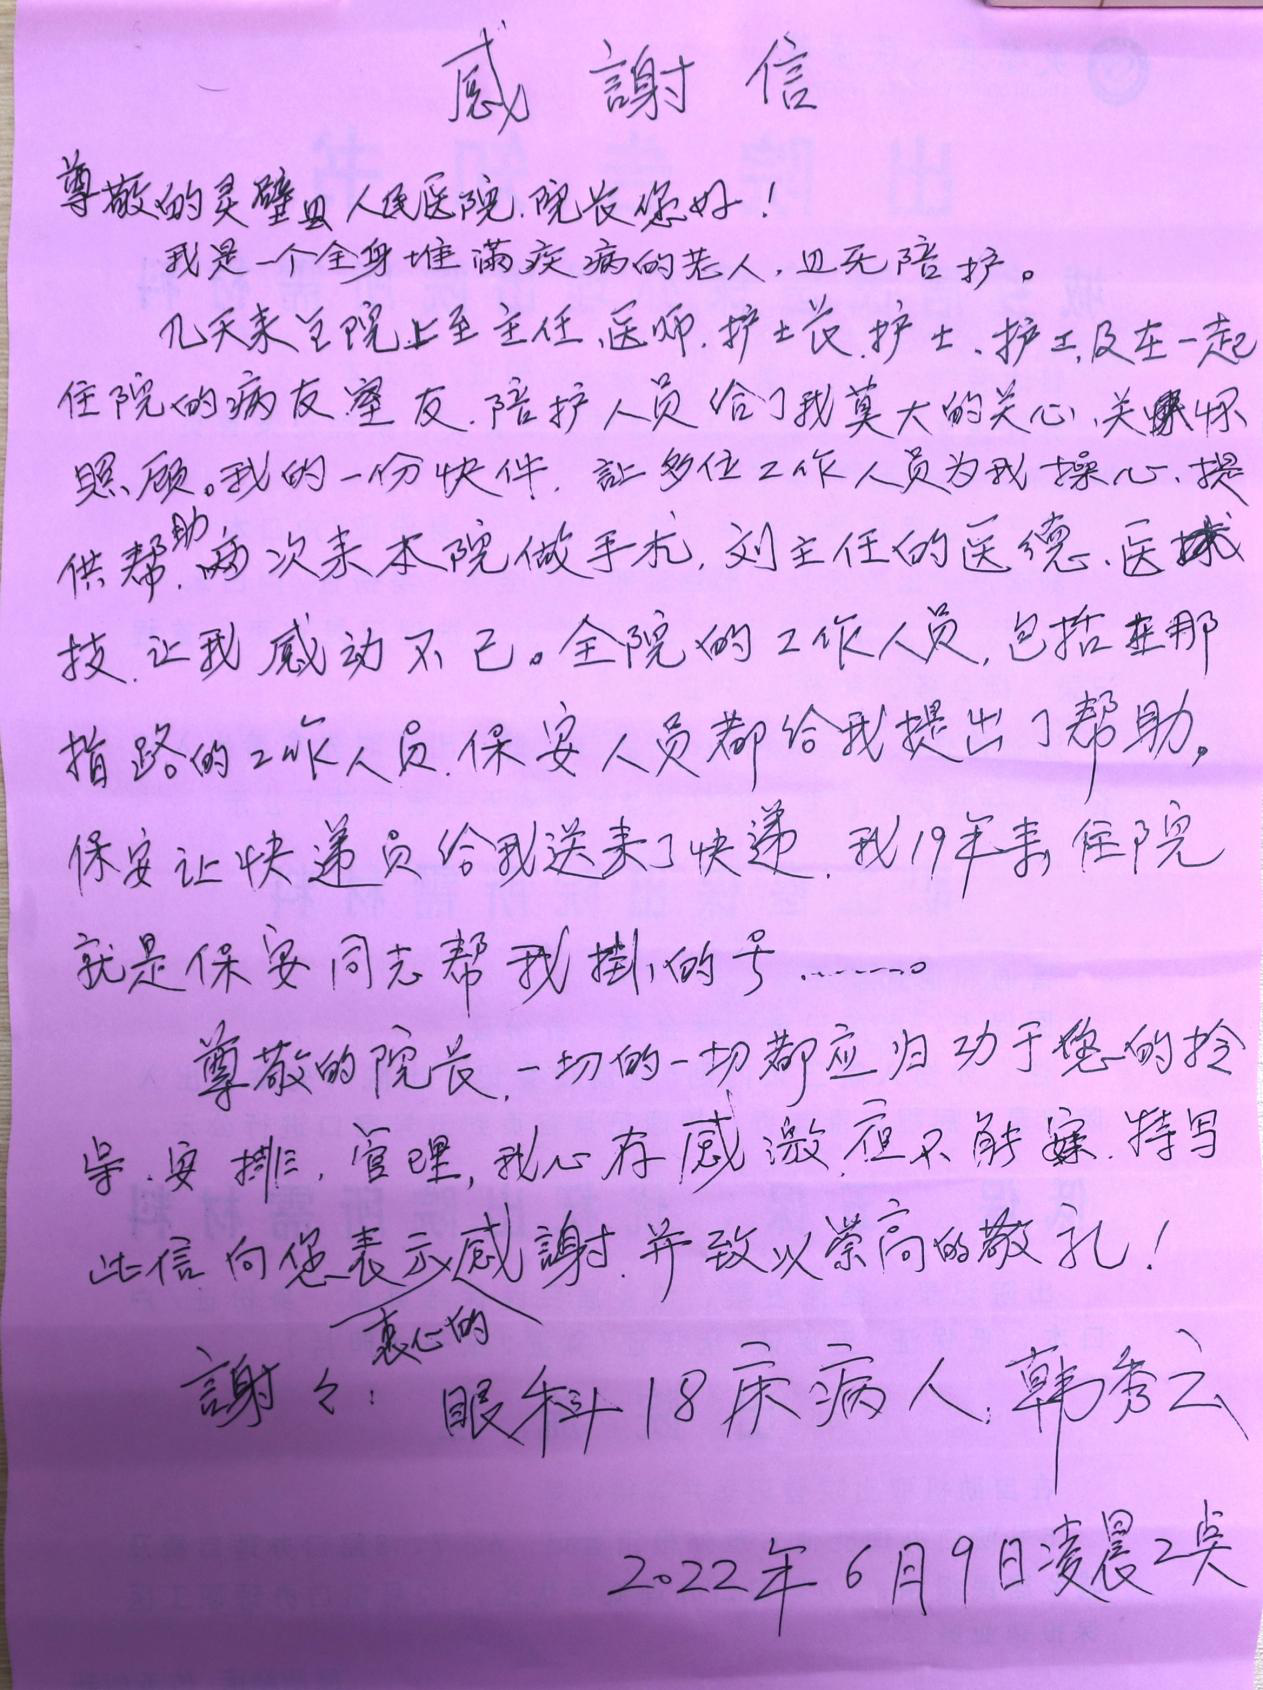 感謝信
尊敬的灵璧县人民医院.院长您好!
我是一个全身堆满疾病的老人,且无陪护。
几天来全院上至主任、医师.护士长.护士、护工,及在一起
住院的病友.室友.陪护人员给了我莫大的关心、关怀
照顾。我的一份快件.讓多位工作人员为我操心、提
供帮助.两次来本院做手术,刘主任的医德、医
技.让我感动不已。全院的工作人员,包括在那
指路的工作人员.保安人员都给我提出了帮助。
保安让快递员给我送来了快递.我19年来住院
就是保安同志帮我掛的号………。
尊敬的院长,一切的一切都应归功于您的领
导.安排、管理,我心存感激.夜不能寐.特写
此信.向您表示衷心的感謝.并致以崇高的敬礼!
謝々:眼科18床病人:韩秀云
2022年6月9日凌晨2点